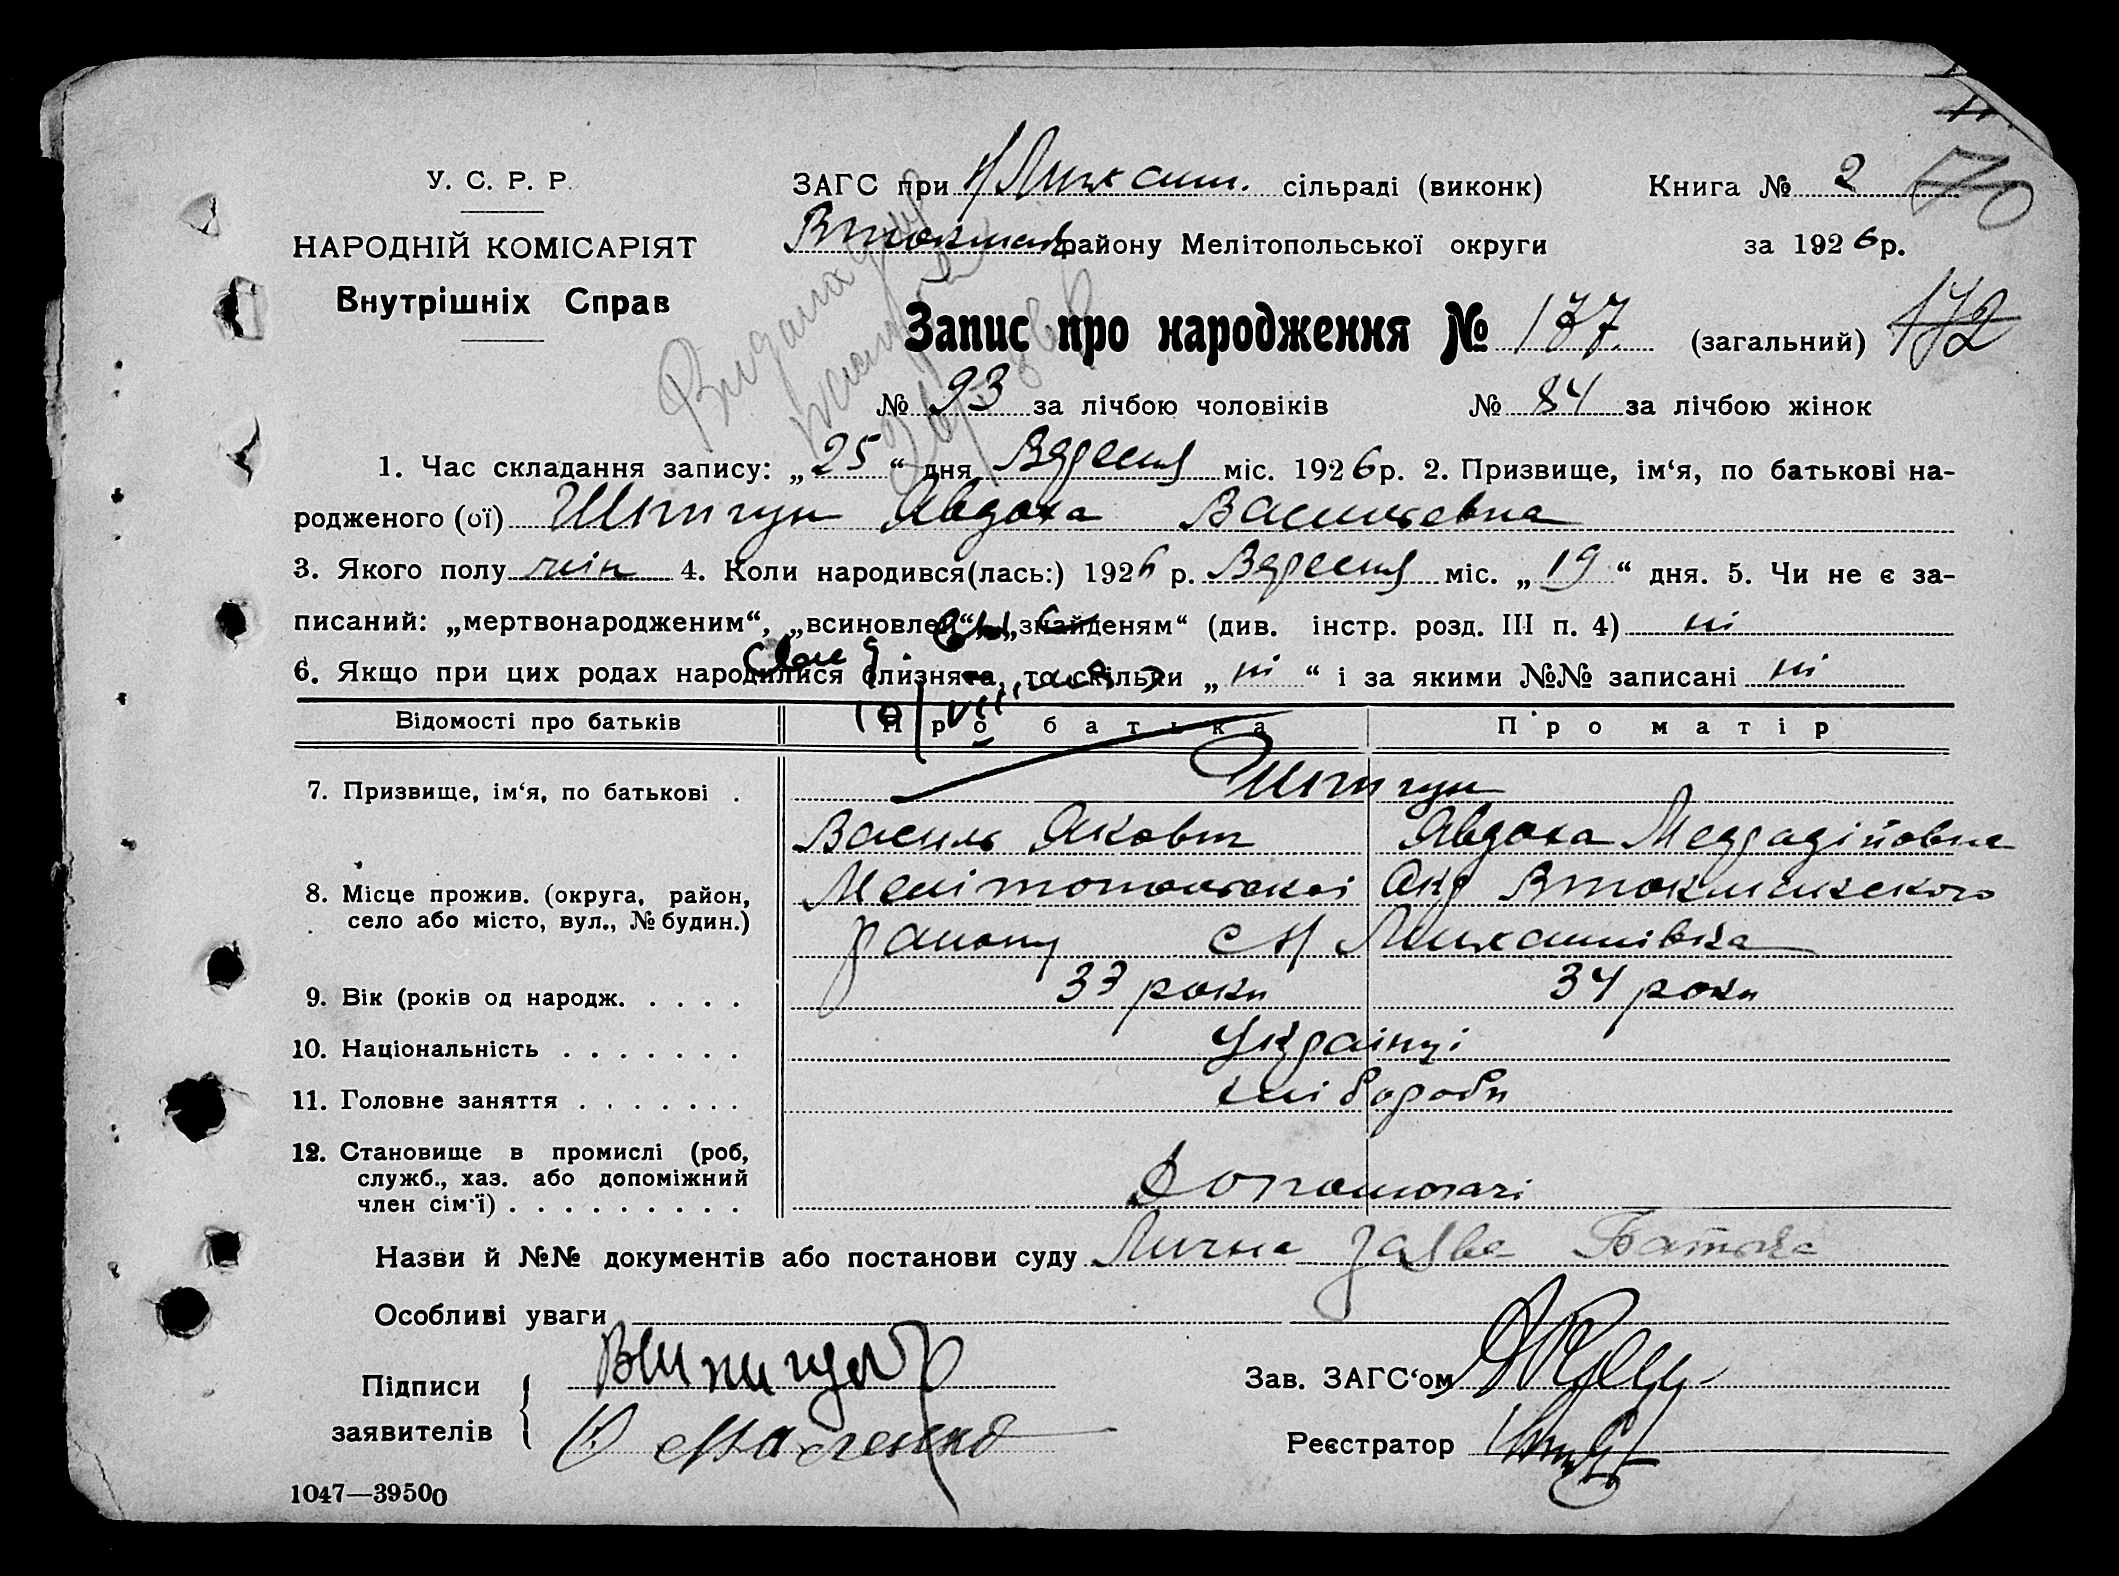 У. С. Р. Р.
НАРОДНІЙ КОМІСАРІЯТ
Внутрішніх Справ
ЗАГС при Н Михайл. сільраді (виконк)
Книга № 2
70
В токмак району Мелітопольської округи
за 1926 р.
Запис про народження № 177 (загальний) 172
№ 93 за лічбою чоловіків № 84 за лічбою жінок
1. Час складання запису: „25“ дня Вересня міс. 1926 р. 2. Призвище, ім‘я, по батькові на-
родженого (ої) Шпигун Явдоха Василевна
3. Якого полу жін 4. Коли народився(лась:) 1926 р. Вересня міс. „19“ дня. 5. Чи не є за-
писаний: „мертвонародженим“, „всиновлен“, „знайденям“ (див. інстр. розд. III п. 4) ні
6. Якщо при цих родах народилися близнята, то скільки „ні“ і за якими №№ записані ні
Відомості про батьків Про батька Про матір
7. Призвище, ім‘я, по батькові . Шпигун
Василь Яковл Явдоха
8. Місце прожив. (округа, район, Мелітопольскої Окр Втокмакского
село або місто, вул., № будин.) району с Н Михайлівка
9. Вік (років од народж. . . . . 37 роки 34 роки
10. Національність . . . . . . . Українці
11. Головне заняття . . . . . . . хлібороби
12. Становище в промислі (роб,
служб., хаз. або допоміжний Допомогачі
член сім‘ї) . . . . . . . . .
Назви й №№ документів або постанови суду Лична заява Батька
Особливі уваги
Підписи Вшпигун Зав. ЗАГС‘ом
заявителів Реєстратор
1047—39500